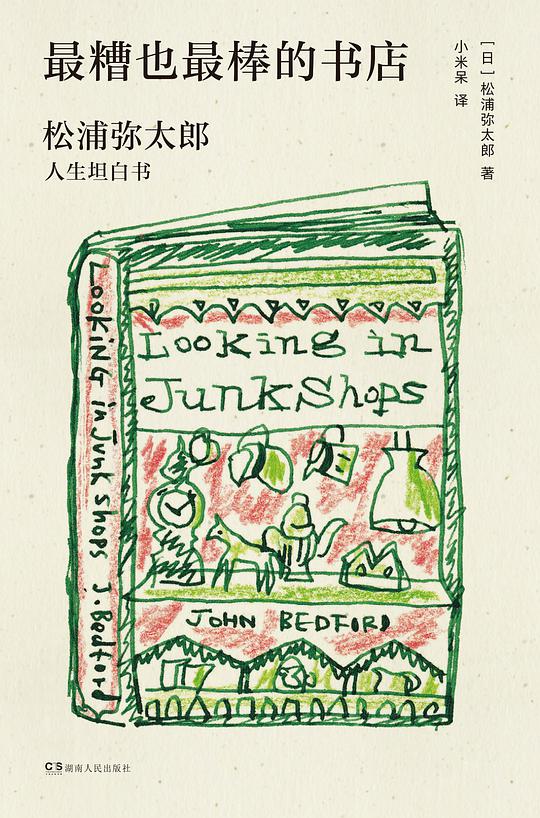 最糟也最棒的书店
松浦弥太郎
人生坦白书
[日] 松浦弥太郎 著
小米呆 译
Looking in
Junk Shops
JOHN BEDFORD
Looking in Junk Shops J. Bedford
CS 湖南人民出版社